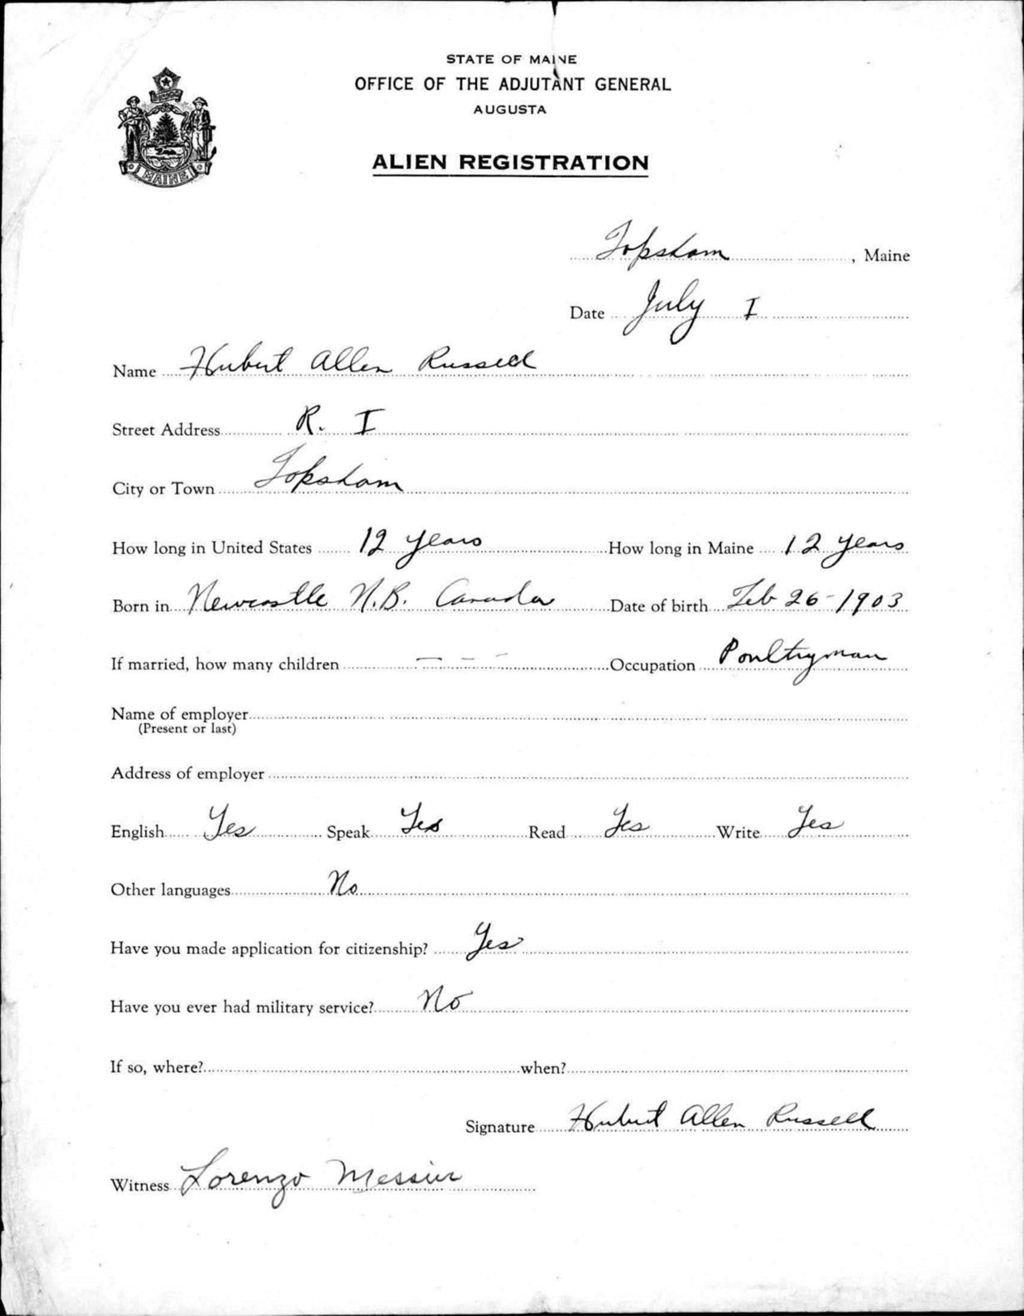 STATE OF MAINE
OFFICE OF THE ADJUTANT GENERAL
AUGUSTA
ALIEN REGISTRATION
MAINE
Topsham, Maine
Date July I
Name Hubert Allen Russell
Street Address R. I
City or Town Topsham
How long in United States 12 years How long in Maine 12 years
Born in Newcastle N.B. Canada Date of birth Feb 26-1903
If married, how many children --- Occupation Poultryman
Name of employer
(Present or last)
Address of employer
English Yes Speak Yes Read Yes Write Yes
Other languages No
Have you made application for citizenship? Yes
Have you ever had military service? No
If so, where? when?
Signature Hubert Allen Russell
Witness Lorenzo Messier